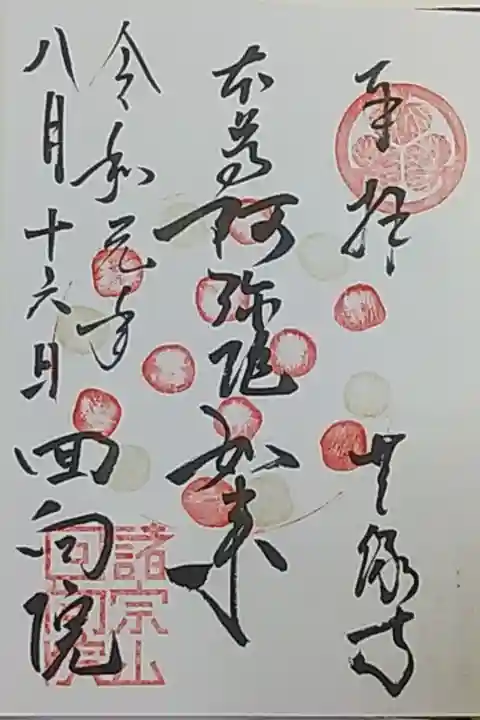 奉拝 無縁寺
本尊阿弥陀如来
令和元年
八月十六日 回向院
諸宗山
回向院